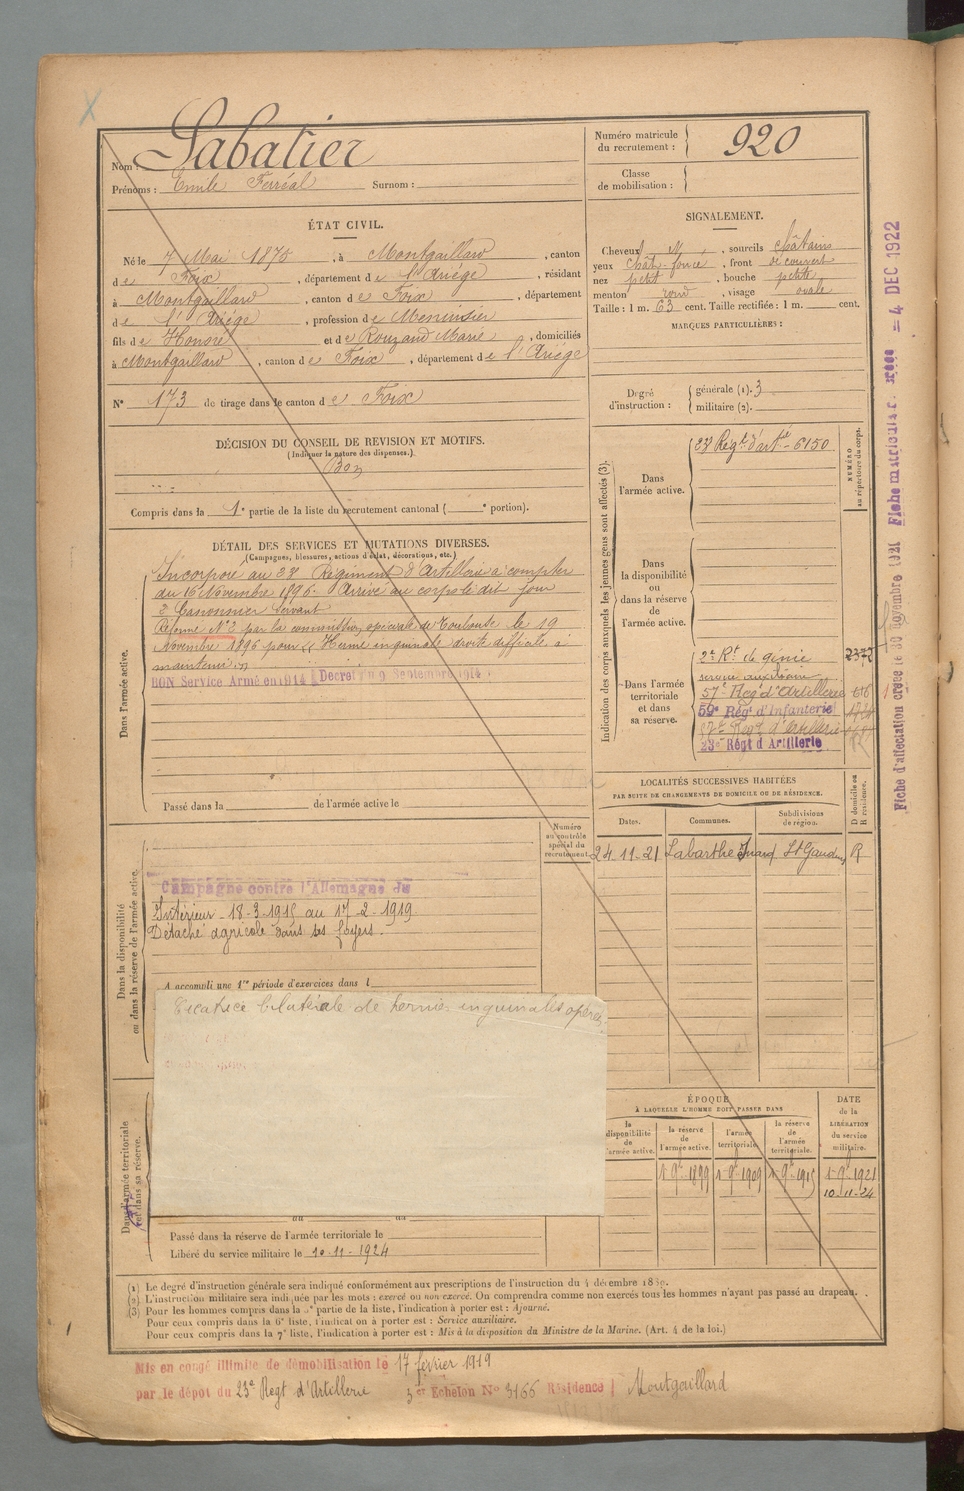 Nom : Sabatier
Prénoms : Emile Ferréal Surnom :
Numéro matricule du recrutement : 920
Classe de mobilisation :
ÉTAT CIVIL.
Né le 7 Mai 1875, à Montgaillard, canton
de Foix, département de l'Ariège, résidant
à Montgaillard, canton de Foix, département
de l'Ariège, profession de Menuisier
fils de Honoré et de Rouzaud Marie, domiciliés
à Montgaillard, canton de Foix, département de l'Ariège
N° 173 de tirage dans le canton de Foix
SIGNALEMENT.
Cheveux , sourcils châtains
yeux chât-foncé, front découvert
nez petit, bouche petite,
menton rond, visage ovale
Taille : 1 m. 63 cent. Taille rectifiée : 1 m. cent.
MARQUES PARTICULIÈRES :
Degré d'instruction : générale (1). 3
militaire (2).
DÉCISION DU CONSEIL DE REVISION ET MOTIFS.
(Indiquer la nature des dispenses.)
Bon
Compris dans la 1e partie de la liste du recrutement cantonal ( e portion).
DÉTAIL DES SERVICES ET MUTATIONS DIVERSES.
(Campagnes, blessures, actions d'éclat, décorations, etc.)
Dans l'armée active.
Incorporé au 23e Régiment d'Artillerie à compter
du 16 Novembre 1896. Arrivé au corps le dit jour
2e Canonnier Servant
Réformé N°2 par la commission spéciale de Toulouse le 19
Novembre 1896 pour "Hernie inguinale droite difficile à
maintenir"
BON Service Armé en 1914 (Decret du 9 Septembre 1914)
Passé dans la de l'armée active le
Indication des corps auxquels les jeunes gens sont affectés (3).
NUMÉRO au répertoire du corps.
Dans l'armée active.
23e Regt d'artie - 6150
Dans la disponibilité ou dans la réserve de l'armée active.
Dans l'armée territoriale et dans sa réserve.
2e Rt de génie 2373
service auxiliaire
57e Reg d'Artillerie
59e Reg d'Infanterie
57e Regt d'Artillerie
23e Régt d'Artillerie
LOCALITÉS SUCCESSIVES HABITÉES
PAR SUITE DE CHANGEMENTS DE DOMICILE OU DE RÉSIDENCE.
Dates. Communes. Subdivisions de région. D domicile ou R résidence.
24-11-21 Labarthe Inard St Gaudens R
Numéro au contrôle spécial du recrutement.
Dans la disponibilité ou dans la réserve de l'armée active.
Campagne contre l'Allemagne du
Intérieur - 18-3-1915 au 17-2-1919.
Détaché agricole dans ses foyers.
A accompli une 1re période d'exercices dans l
Cicatrice bilatérale de hernies inguinales opérées
ÉPOQUE
À LAQUELLE L'HOMME DOIT PASSER DANS
la disponibilité de l'armée active. la réserve de l'armée active. l'armée territoriale. la réserve de l'armée territoriale. DATE de la LIBÉRATION du service militaire.
1-9e-1899 1-9e-1909 1-9e-1915 1-9e-1921
10-11-24
Dans l'armée territoriale et dans sa réserve.
au au
Passé dans la réserve de l'armée territoriale le
Libéré du service militaire le 10-11-1924
(1) Le degré d'instruction générale sera indiqué conformément aux prescriptions de l'instruction du 4 décembre 1889.
(2) L'instruction militaire sera indiquée par les mots : exercé ou non exercé. On comprendra comme non exercés tous les hommes n'ayant pas passé au drapeau.
(3) Pour les hommes compris dans la 2e partie de la liste, l'indication à porter est : Ajourné.
Pour ceux compris dans la 6e liste, l'indication à porter est : Service auxiliaire.
Pour ceux compris dans la 7e liste, l'indication à porter est : Mis à la disposition du Ministre de la Marine. (Art. 4 de la loi.)
Mis en congé illimité de démobilisation le 17 février 1919
par le dépôt du 23e Regt d'Artillerie 3er Echelon N° 3166 Résidence Montgaillard
Fiche d'affectation créée le 30 novembre 1921 Fiche matricule créée = 4 DEC 1922